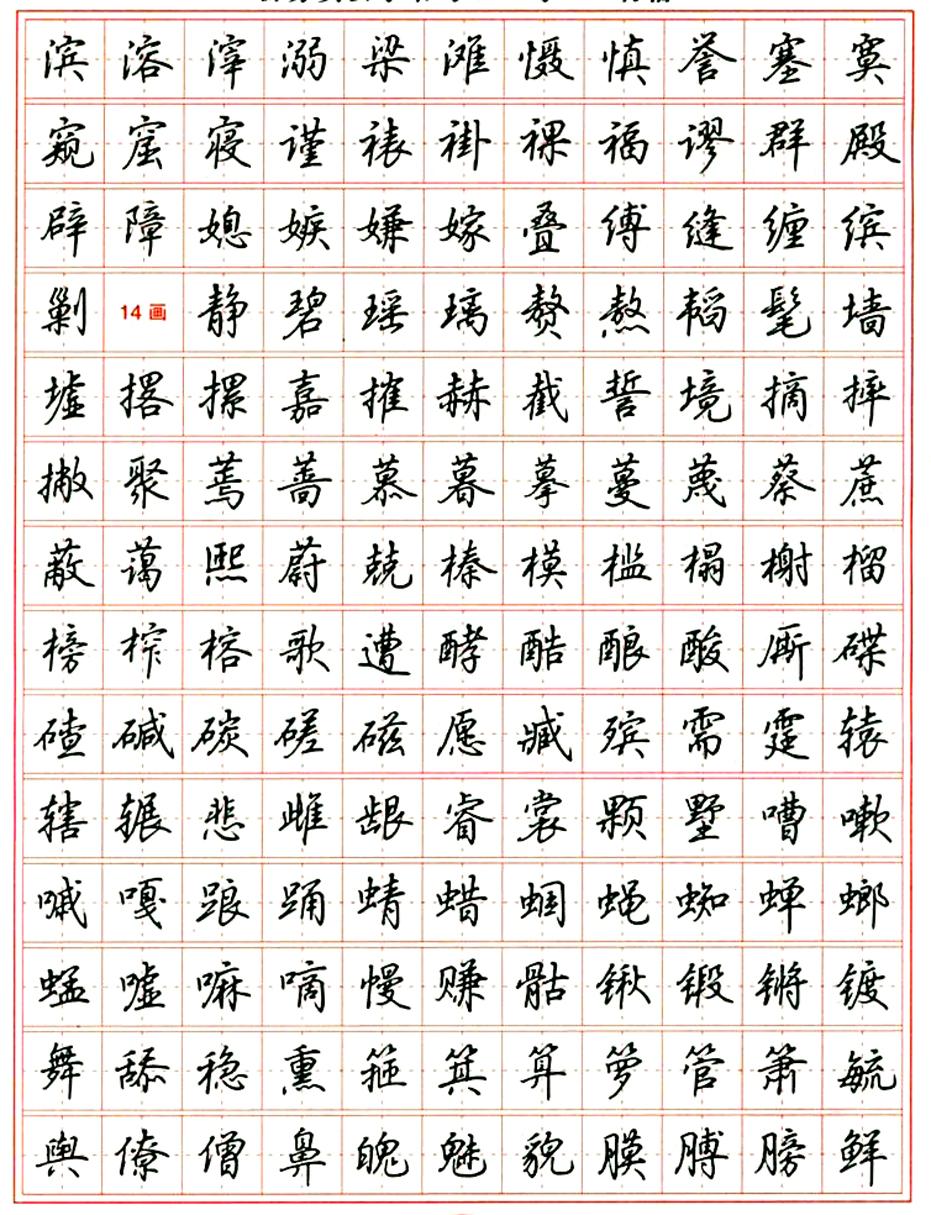 滨溶滓溺粱滩慑慎誉塞寞
窥窟寝谨裱褂裸福谬群殿
辟障媳嫉嫌嫁叠缚缝缠缤
剿 14画 静碧瑶璃赘熬韬髦墙
墟撂摞嘉摧赫截誓境摘摔
撇聚蔫蔷慕暮摹蔓蔑蔡蔗
蔽蔼熙蔚兢榛模槛榻榭榴
榜榨榕歌遭酵酷酿酸厮碟
碴碱碳磋磁愿臧殡需霆辕
辖辗悲雌龈睿裳颗墅嘈嗽
嘁嘎踉踊蜻蜡蝈蝇蜘蝉螂
蜢嘘嘛嘀幔赚骷锹锻锵镀
舞舔稳熏箍箕算箩管箫毓
舆僚僧鼻魄魅貌膜膊膀鲜